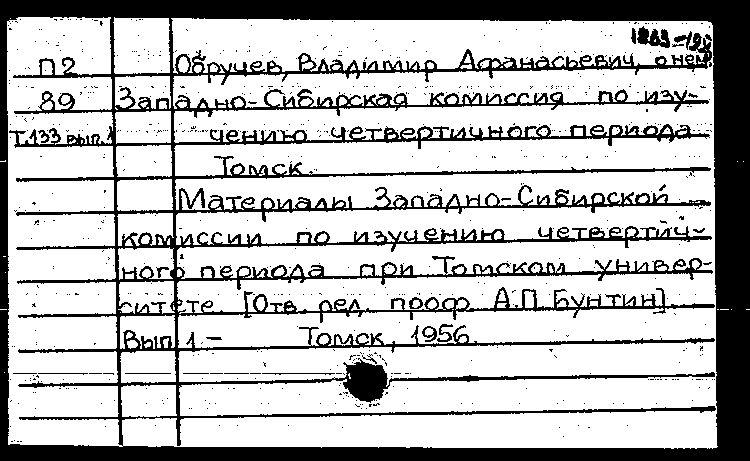 П2 Обручев, Владимир Афанасьевич, о нем
89 Западно-Сибирская комиссия по изу-
Т.133 вып.1 чению четвертичного периода
Томск.
Материалы Западно-Сибирской
комиссии по изучению четвертич-
ного периода при Томском универ-
ситете. [Отв. ред. проф. А.П. Бунтин].
Вып. 1 - Томск, 1956.